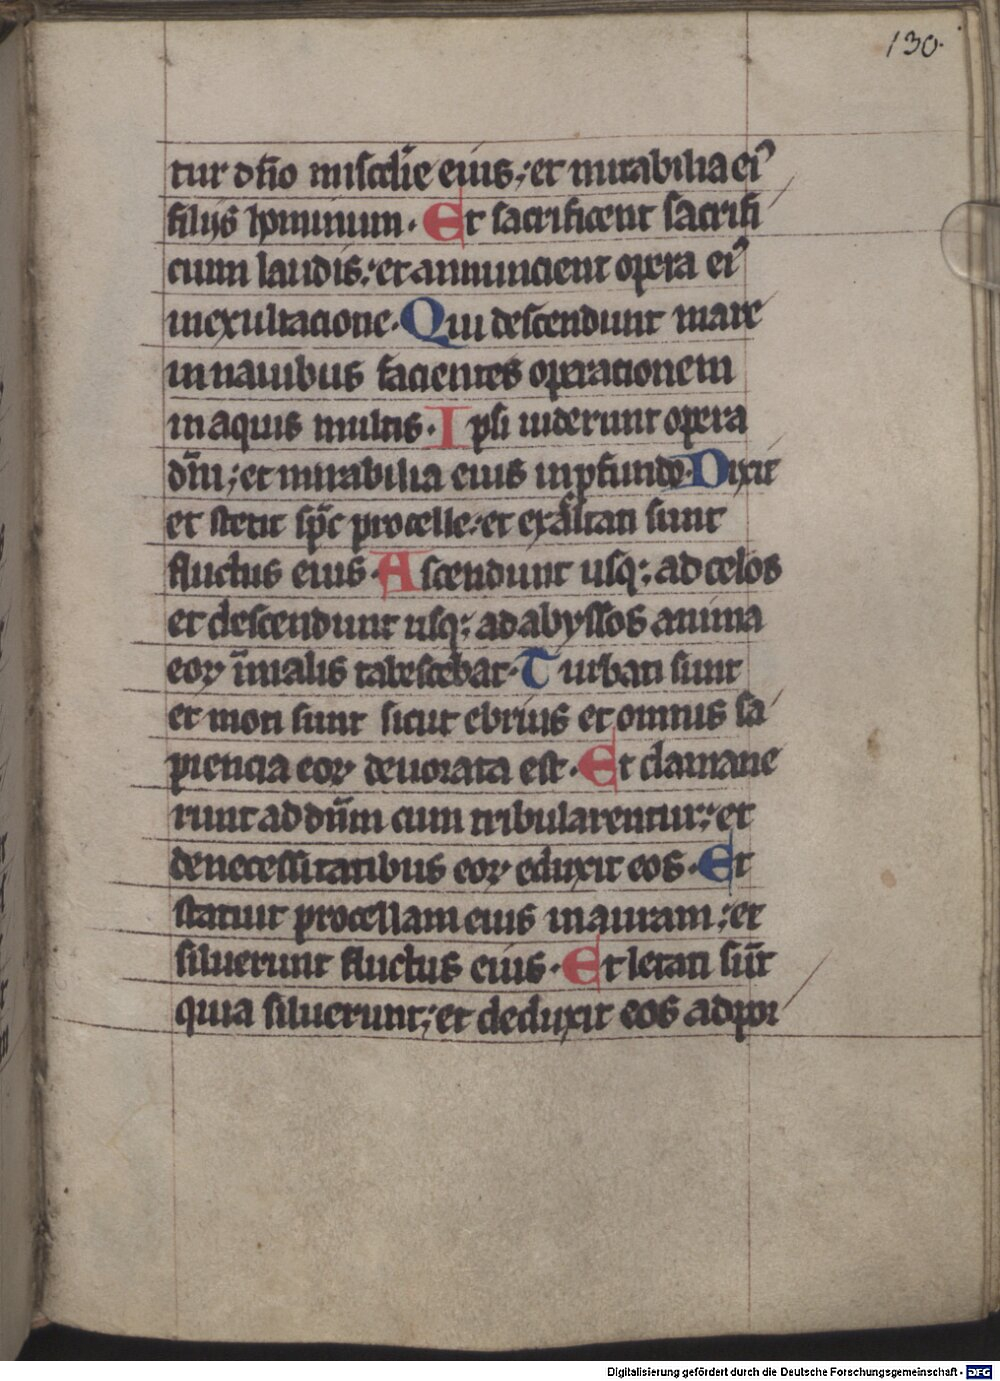 130.
tur dño miscďie eius; et mirabilia ei᾿
filijs hominum. Et sacrificent sacrifi
cium laudis; et annuncient opera ei᾿
in exultacione. Qui descendunt mare
in nauibus facientes operacionem
in aquis multis. Ipsi uiderunt opera
dñi; et mirabilia eius in pfundo. Dixit
et stetit sp̄c procelle; et exaltati sunt
fluctus eius. Ascendunt usq; ad celos
et descendunt usq; ad abyssos anima
eoꝝ ī malis tabescebat. Turbati sunt
et moti sunt sicut ebrius et omnis sa
piencia eoꝝ deuorata est. Et clamaue
runt ad dn̄m cum tribularentur; et
de necessitatibus eoꝝ eduxit eos. Et
statuit procellam eius in auram; et
siluerunt fluctus eius. Et letati sūt
quia siluerunt; et deduxit eos ad por
Digitalisierung gefördert durch die Deutsche Forschungsgemeinschaft - DFG